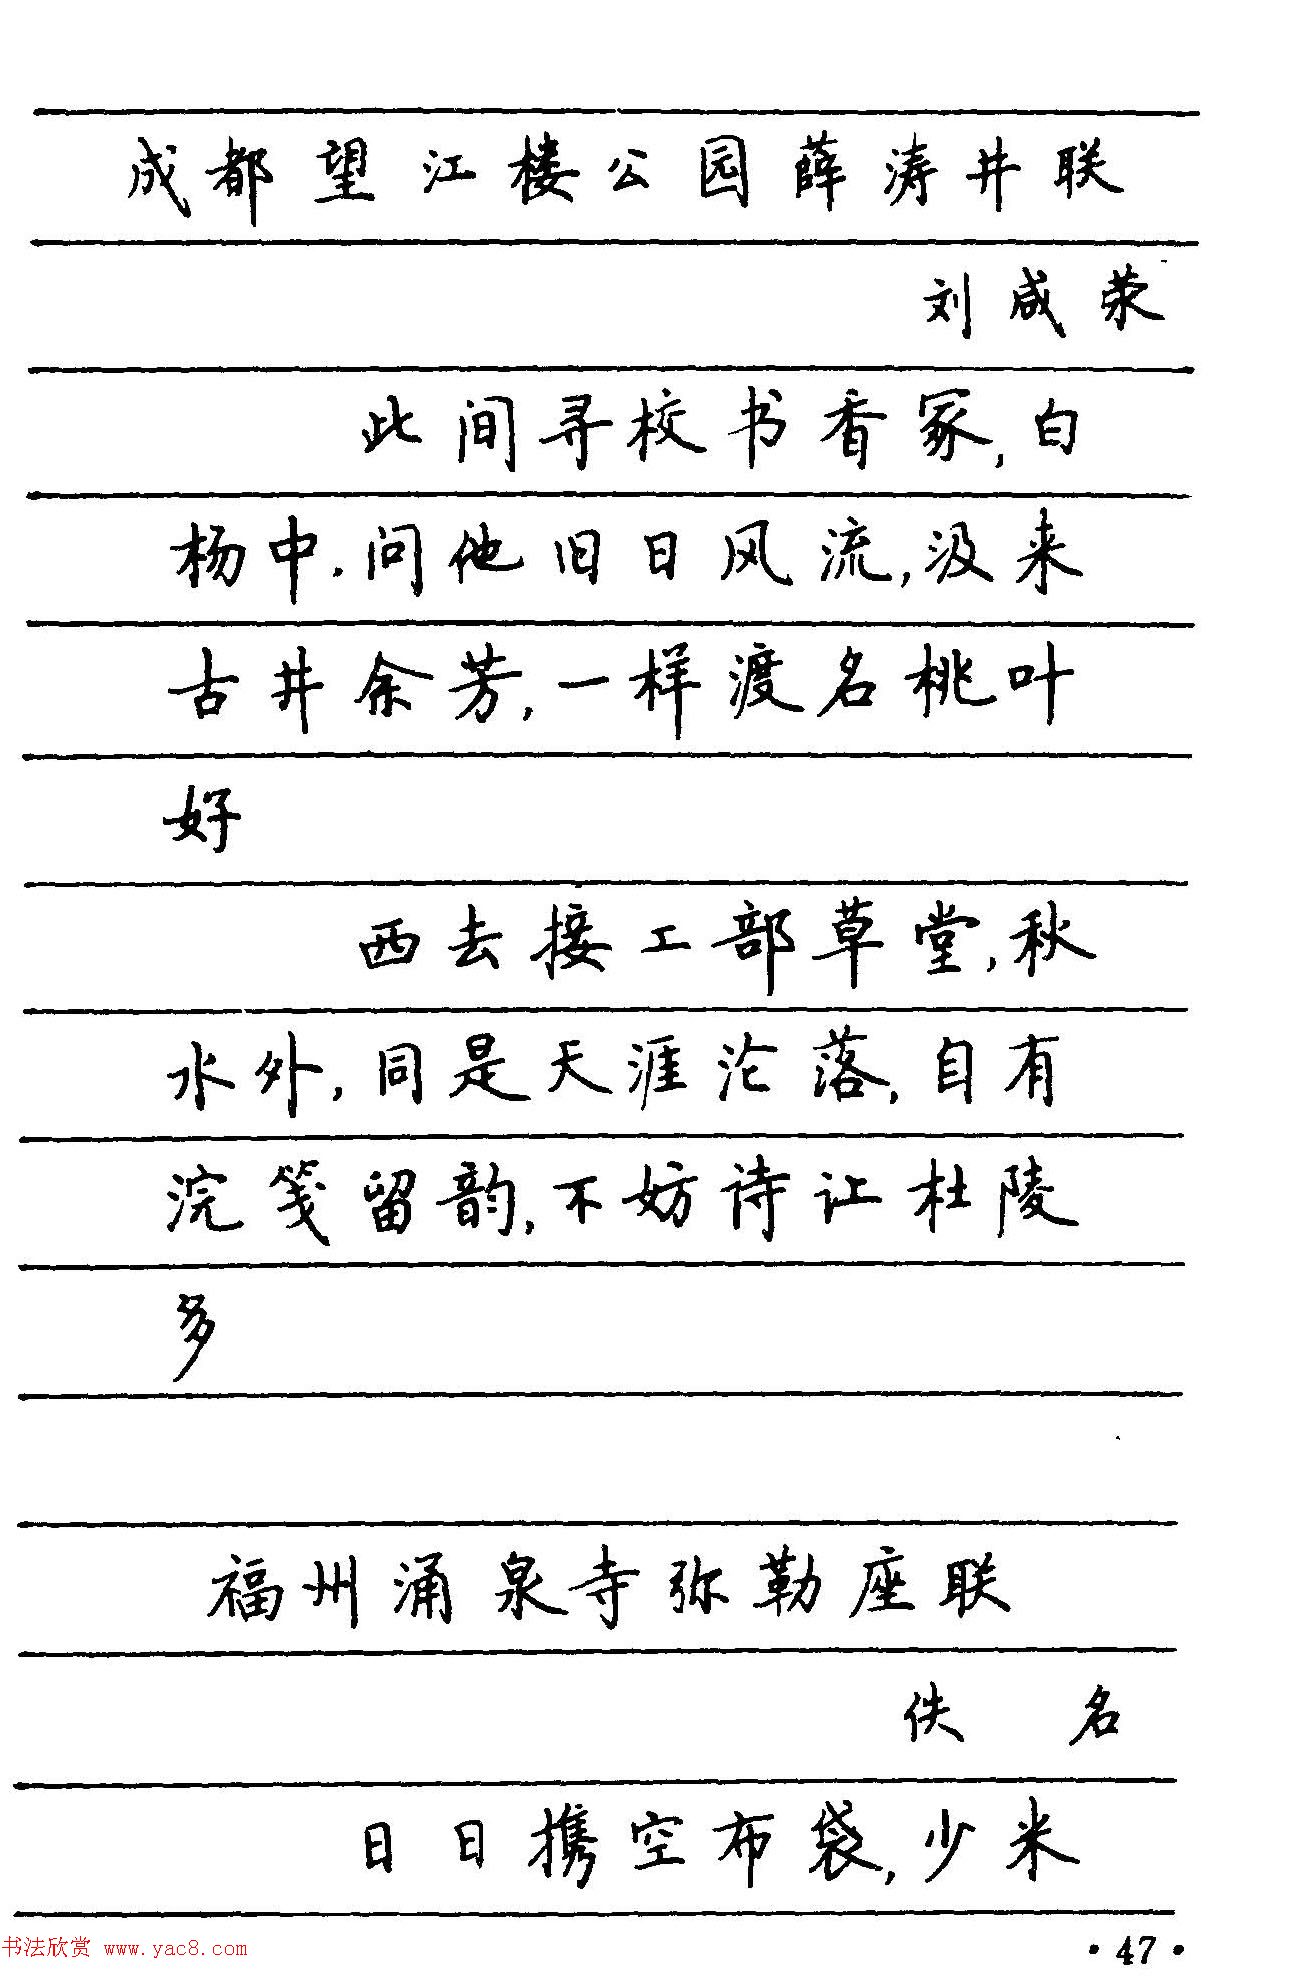 成都望江楼公园薛涛井联
刘咸荥
此间寻校书香冢,白
杨中.问他旧日风流,汲来
古井余芳,一样渡名桃叶
好
西去接工部草堂,秋
水外,同是天涯沦落,自有
浣笺留韵,不妨诗让杜陵
多
福州涌泉寺弥勒座联
佚 名
日日携空布袋,少米
·47·
书法欣赏 www.yac8.com